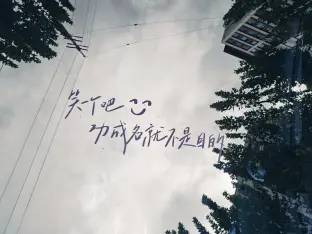 笑一个吧
功成名就不是目的